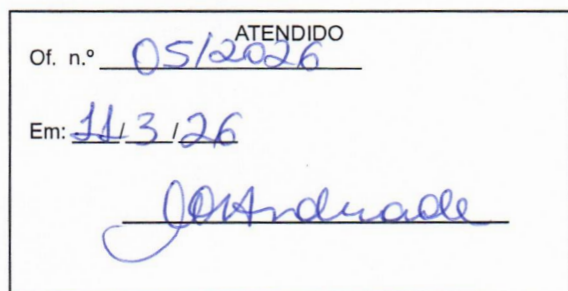 ATENDIDO
Of. n.º 05/2026
Em: 11/3/26
JOAndrade